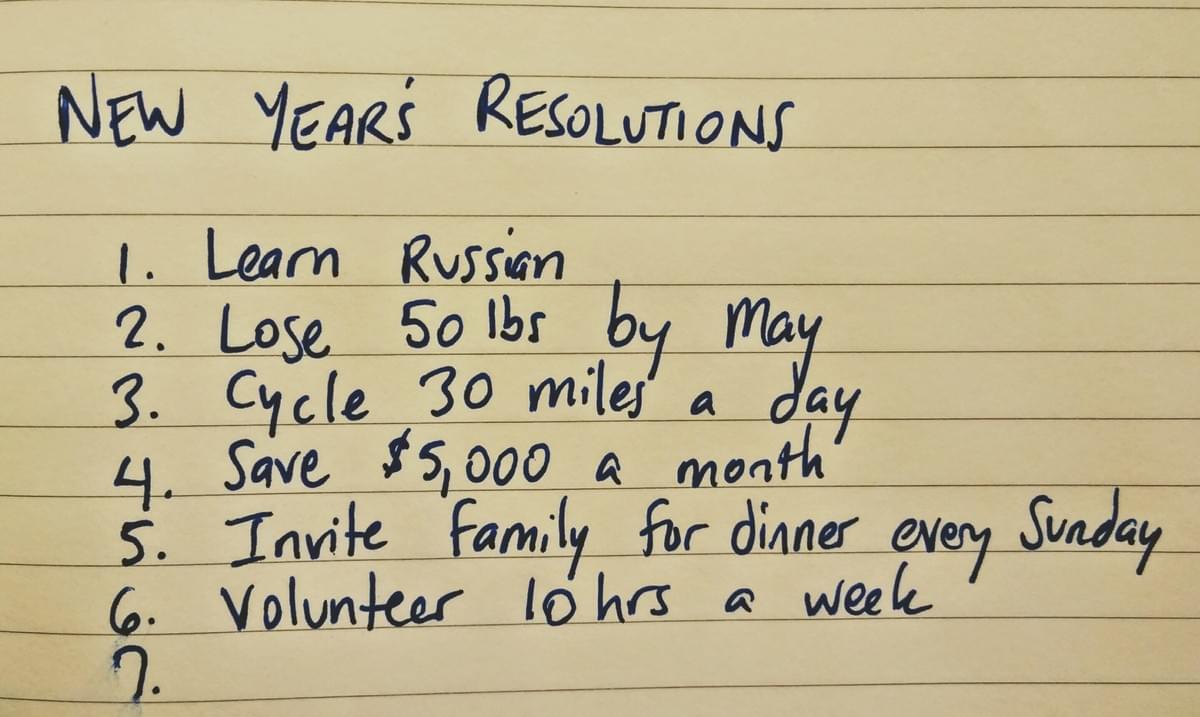 NEW YEAR'S RESOLUTIONS
1. Learn Russian
2. Lose 50 lbs by May
3. Cycle 30 miles a day
4. Save $5,000 a month
5. Invite family for dinner every Sunday
6. Volunteer 10 hrs a week
7.